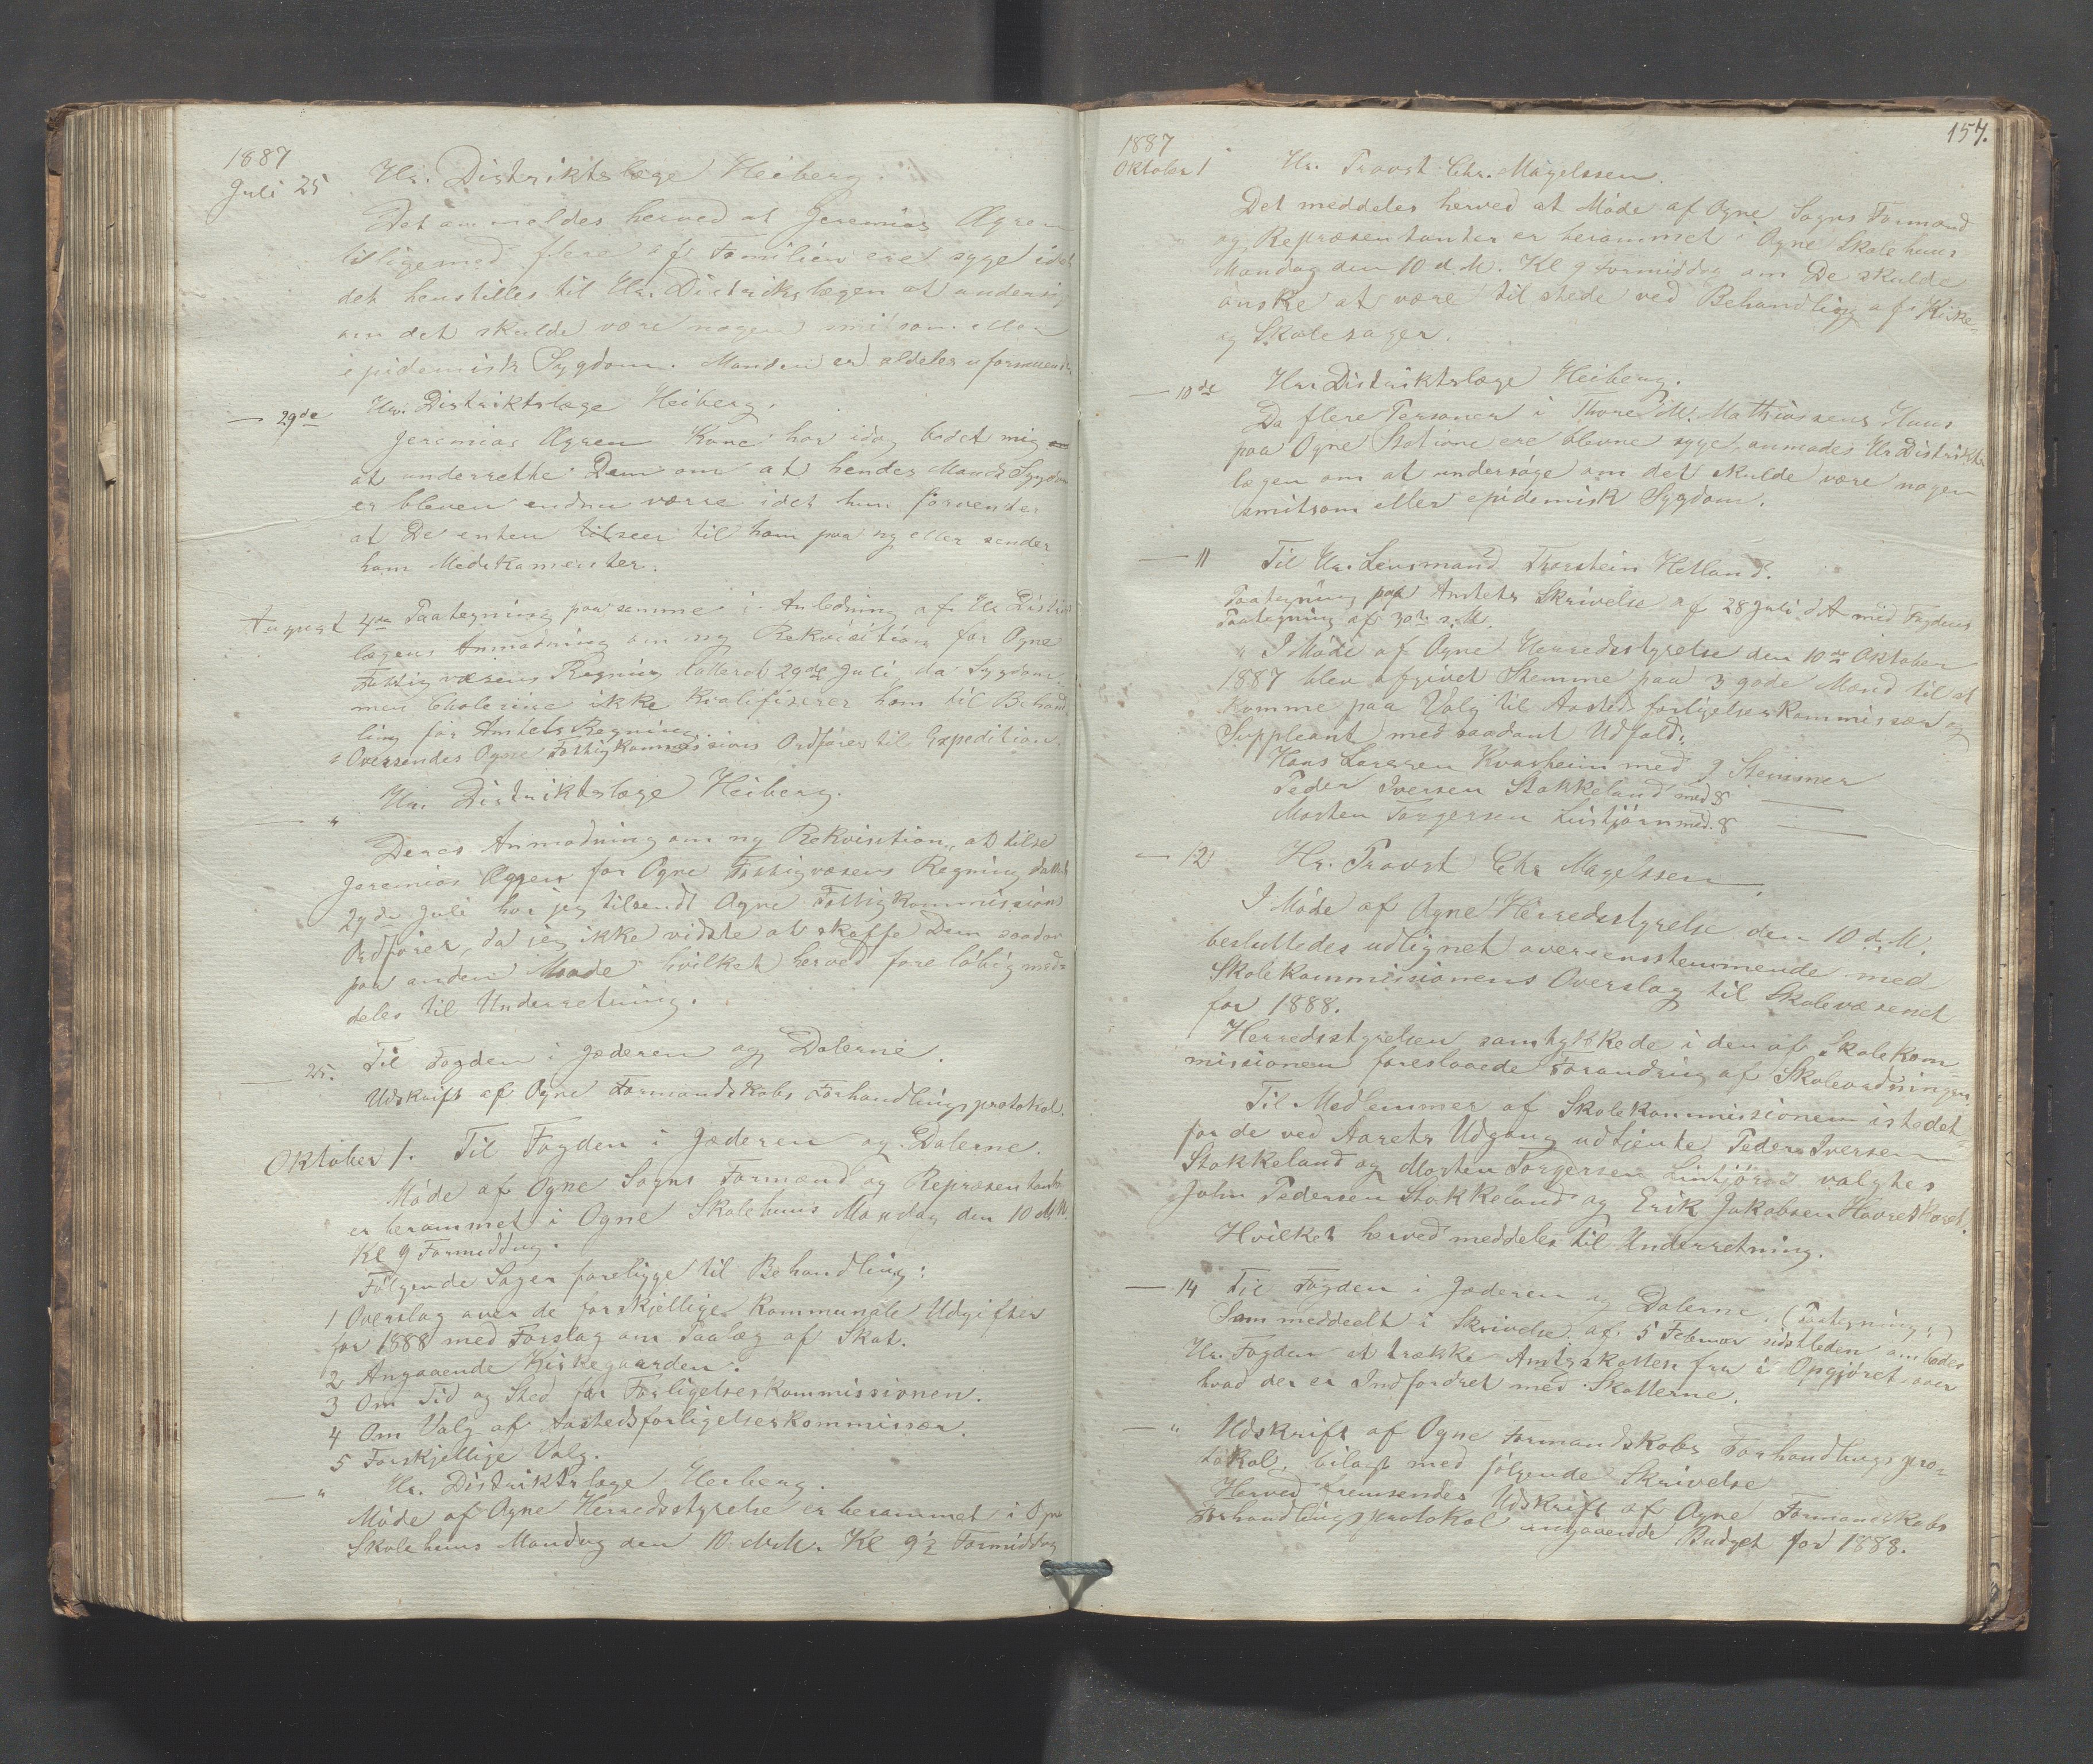 1887
Juli 25 Hr. Distriktslæge Heiberg.
Det anmeldes herved at Jeremias Ægren
tilligemed flere af Familien ere syge idet
det henstilles til Hr. Distriktslægen at undersø
om det skulde være nogen smitsom eller
epidemisk Sygdom. Manden er aldeles uformuende.
— 29de Hr. Distriktslæge Heiberg.
Jeremias Ægren Kone har idag bedet mig
at underrette Dem om at hendes Mands Sygdom
er bleven endnu værre idet hun forventer
at De enten tilseer til ham paa ny eller sender
ham Medikamenter.
August 4de Paategning paa samme i Anledning af Hr Distrikts
lægens Anmodning om ny Rekvisition for Ogne
Fattigvæsens Regning datteret 29de Juli, da Sygdom
men Cholerine ikke kvalifiserer ham til Behand
ling for Amtets Regning.
Oversendes Ogne Fattigkommissions Ordfører til Expedition.
— " Hr. Distriktslæge Heiberg.
Deres Anmodning om ny Rekvisition, at tilse
Jeremias Ægren for Ogne Fattigvæsens Regning datteret
29de Juli har jeg tilsendt Ogne Fattigkommissions
Ordfører, da jeg ikke vidste at skaffe Dem saadan
paa anden Maade hvilket herved foreløbig med-
deles til Underretning.
— 25. Til Fogden i Jæderen og Dalerne.
Udskrift af Ogne Formandskabs Forhandlingsprotokol.
Oktober 1. Til Fogden i Jæderen og Dalerne.
Møde af Ogne Sogns Formænd og Repræsentanter
er berammet i Ogne Skolehuus Mandag den 10 d.M.
Kl 9 Formiddag.
Følgende Sager foreligge til Behandling:
1 Overslag over de forskjellige Kommunale Udgifter
for 1888 med Forslag om Paalæg af Skat.
2 Angaaende Kirkegaarden.
3 Om Tid og Sted for Forligelseskommissionen.
4 Om Valg af Aastedsforligelseskommissær.
5 Forskjellige Valg.
— " Hr. Distriktslæge Heiberg.
Møde af Ogne Herredsstyrelse er berammet i Ogne
Skolehuus Mandag den 10. d.M. Kl 9½ Formiddag
157.
1887
Oktober 1 Hr. Provst Chr. Magelssen.
Det meddeles herved at Møde af Ogne Sogns Formænd
og Repræsentanter er berammet i Ogne Skolehuus
Mandag den 10 d.M. Kl 9 Formiddag om De skulde
ønske at være til stede ved Behandling af Kirke-
og Skolesager.
— 10de Hr. Distriktslæge Heiberg.
Da flere Personer i Thore M. Mathiassens Huus
paa Ogne Station ere blevne syge, anmodes Hr Distrikts
lægen om at undersøge om det skulde være nogen
smitsom eller epidemisk Sygdom.
— 11 Til Hr. Lensmand Thorstein Hetland.
Paategning paa Amtets Skrivelse af 28 Juli d.A med Fogdens
Paategning af 30te s.M.
" I Møde af Ogne Herredsstyrelse den 10de Oktober
1887 blev afgivet Stemme paa 3 gode Mænd til at
komme paa Valg til Aastedsforligelseskommissær og
Suppleant med saadant Udfald:
Hans Larssen Kvasheim med 9 Stemmer
Peder Iversen Stokkeland med 8 —
Morten Torgersen Lintjørn med 8 —
— 12 Hr. Provst Chr Magelssen.
I Møde af Ogne Herredsstyrelse den 10 d.M.
besluttedes udlignet overensstemmende med
Skolekommissionens Overslag til Skolevæsenet
for 1888.
Herredsstyrelsen samtykkede i den af Skolekom-
missionen foreslaaede Forandring af Skoleordningen.
Til Medlemmer af Skolekommissionen istedet-
for de ved Aarets Udgang udtjente Peder Iversen
Stokkeland og Morten Torgersen Lintjørn valgtes
John Pedersen Stokkeland og Erik Jakobsen
Hvilket herved meddeles til Underretning.
— 14 Til Fogden i Jæderen og Dalerne. (Paategning:)
Som meddeelt i Skrivelse af 5 Februar sidstleden anmodes
Hr. Fogden at trække Amtsskatten fra i Opgjøret over
hvad der er Indfordret med Skatterne.
— " Udskrift af Ogne Formandskabs Forhandlingspro-
tokol, bilagt med følgende Skrivelse
Herved fremsendes Udskrift af Ogne Formandskabs
Forhandlingsprotokol angaaende Budget for 1888.